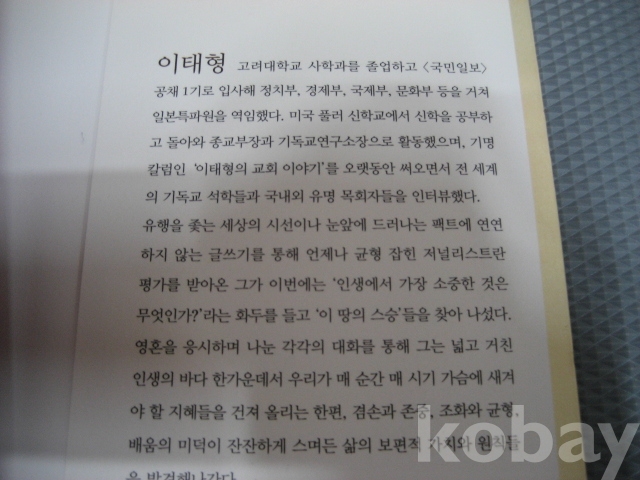 이태형 고려대학교 사학과를 졸업하고 〈국민일보〉
공채 1기로 입사해 정치부, 경제부, 국제부, 문화부 등을 거쳐
일본특파원을 역임했다. 미국 풀러 신학교에서 신학을 공부하
고 돌아와 종교부장과 기독교연구소장으로 활동했으며, 기명
칼럼인 ‘이태형의 교회 이야기’를 오랫동안 써오면서 전 세계
의 기독교 석학들과 국내외 유명 목회자들을 인터뷰했다.
유행을 좇는 세상의 시선이나 눈앞에 드러나는 팩트에 연연
하지 않는 글쓰기를 통해 언제나 균형 잡힌 저널리스트란
평가를 받아온 그가 이번에는 ‘인생에서 가장 소중한 것은
무엇인가?’라는 화두를 들고 ‘이 땅의 스승’들을 찾아 나섰다.
영혼을 응시하며 나눈 각각의 대화를 통해 그는 넓고 거친
인생의 바다 한가운데서 우리가 매 순간 매 시기 가슴에 새겨
야 할 지혜들을 건져 올리는 한편, 겸손과 존중, 조화와 균형,
배움의 미덕이 잔잔하게 스며든 삶의 보편적 가치와 원칙들
을 발견해나간다.
kobay